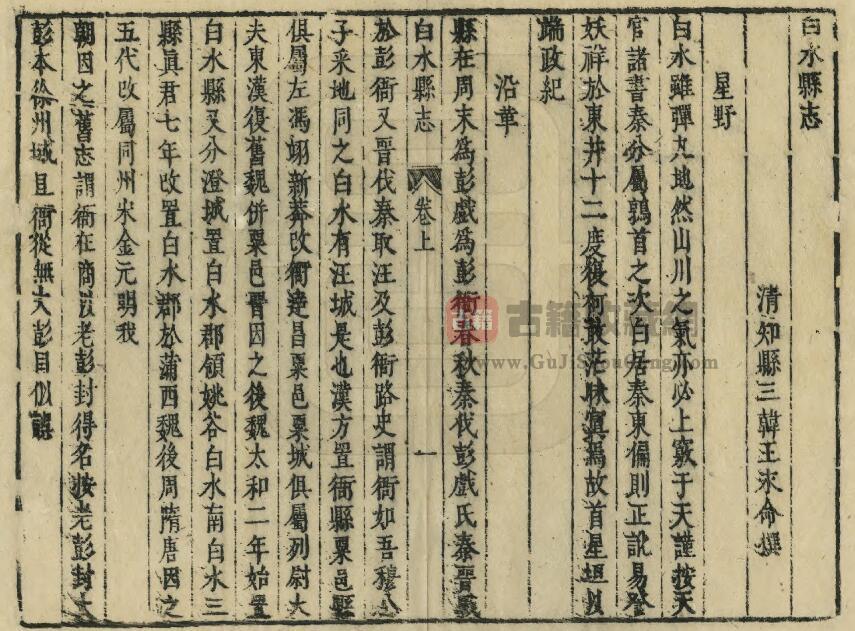 白水縣志
清知縣三韓王永命撰
星野
白水雖彈丸地然山川之氣亦必上竅于天謹按天
官諸書秦分屬鶉首之次白居秦東偏則正訛易登
妖祥於東井十二度後何敢茫昧寘焉故首星垣以
端政紀
沿革
縣在周末為彭戲為彭衙春秋秦伐彭戲氏秦晉戰
白水縣志 卷上 一
於彭衙又晉伐秦取汪及彭衙路史謂衙如吾穆公
子采地同之白水有汪城是也漢方置衙縣粟邑縣
俱屬左馮翊新莽改衙達昌粟邑粟城俱屬列尉大
夫東漢復舊魏併粟邑晉因之後魏太和二年始置
白水縣又分澄城置白水郡領姚谷白水南白水三
縣眞君七年改置白水郡於蒲西魏後周隋唐因之
五代改屬同州宋金元明我
朝因之舊志謂衙在商以老彭封得名按老彭封大
彭本徐州域且衙從無大彭目似誤
古籍
古籍收藏網
www.GuJiShouCang.com